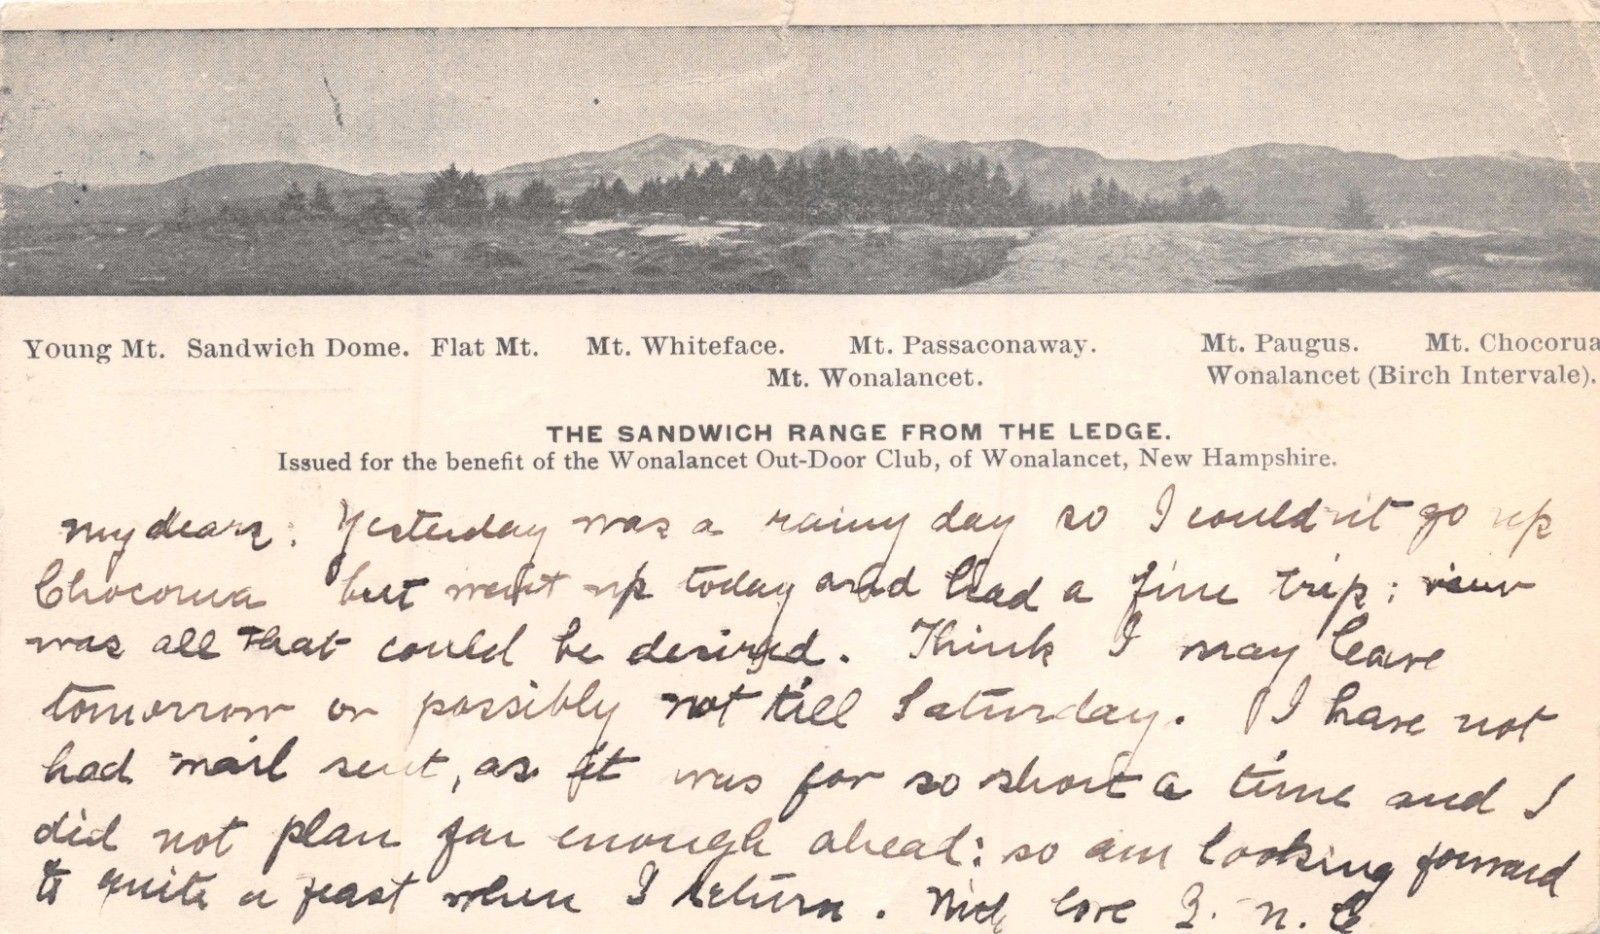 Young Mt. Sandwich Dome. Flat Mt. Mt. Whiteface. Mt. Passaconaway. Mt. Paugus. Mt. Chocorua
Mt. Wonalancet. Wonalancet (Birch Intervale).
THE SANDWICH RANGE FROM THE LEDGE.
Issued for the benefit of the Wonalancet Out-Door Club, of Wonalancet, New Hampshire.
My dears: Yesterday was a rainy day so I couldn't go up
Chocorua but went up today and had a fine trip: view
was all that could be desired. Think I may leave
tomorrow or possibly not till Saturday. I have not
had mail sent, as it was for so short a time and I
did not plan far enough ahead: so am looking forward
to quite a feast when I return. With love